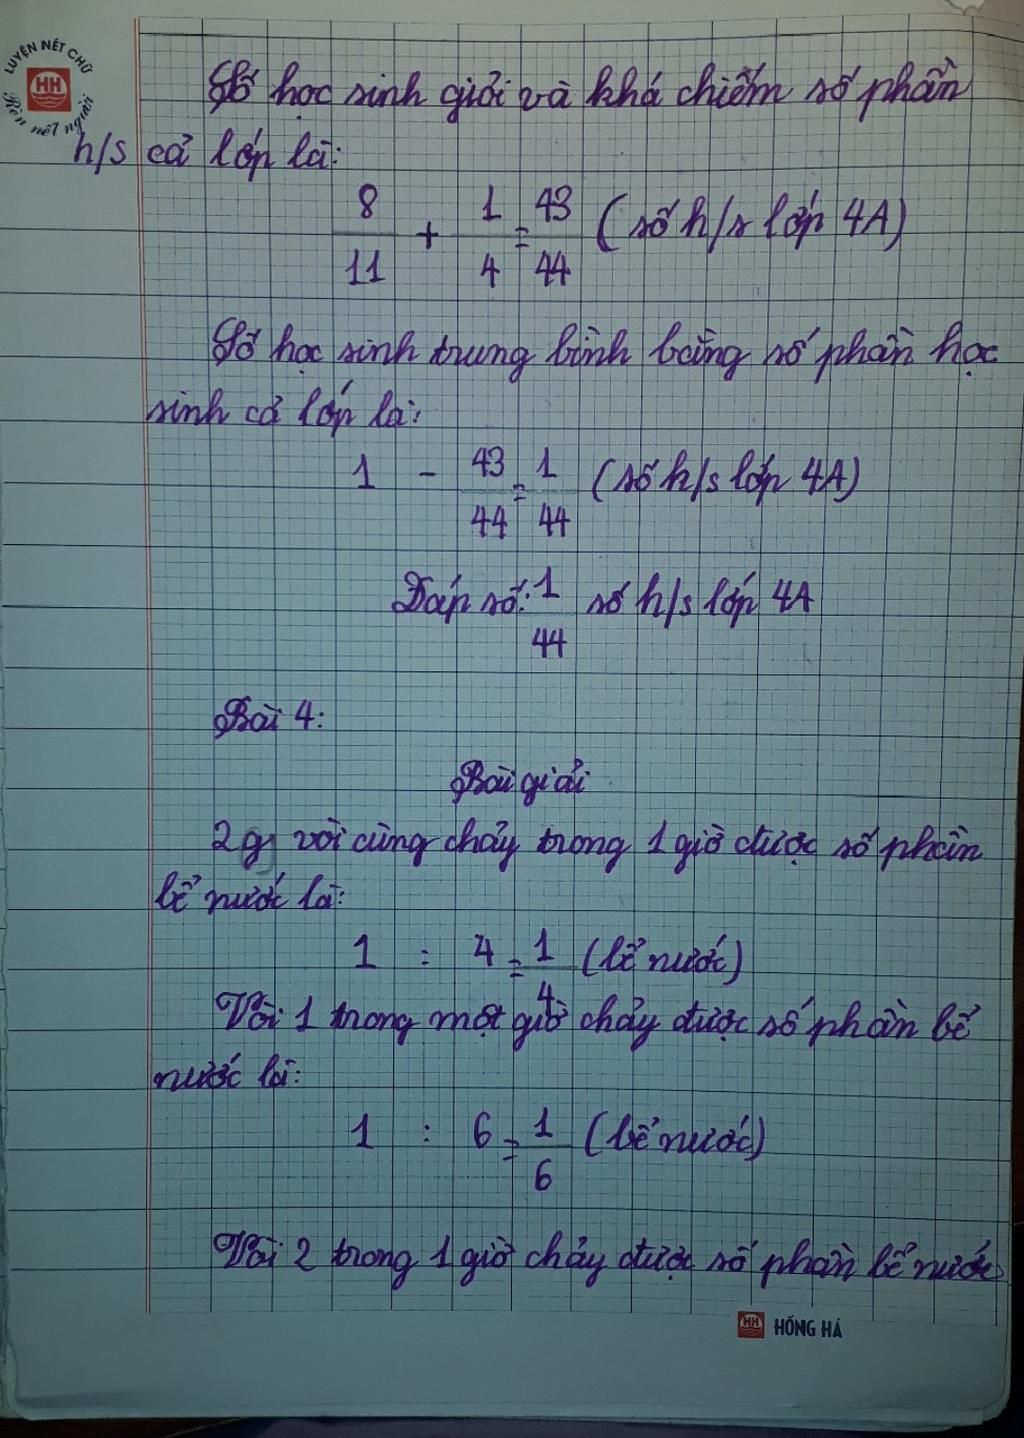 LUYỆN NÉT CHỮ
HH
Rèn nết người
Số học sinh giỏi và khá chiếm số phần
h/s cả lớp là:
8/11 + 1/4 = 43/44 (số h/s lớp 4A)
Số học sinh trung bình bằng số phần học
sinh cả lớp là:
1 - 43/44 = 1/44 (số h/s lớp 4A)
Đáp số: 1/44 số h/s lớp 4A
Bài 4:
Bài giải
2 vòi cùng chảy trong 1 giờ được số phần
bể nước là:
1 : 4 = 1/4 (bể nước)
Vòi 1 trong một giờ chảy được số phần bể
nước là:
1 : 6 = 1/6 (bể nước)
Vòi 2 trong 1 giờ chảy được số phần bể nước
HH HỒNG HÀ